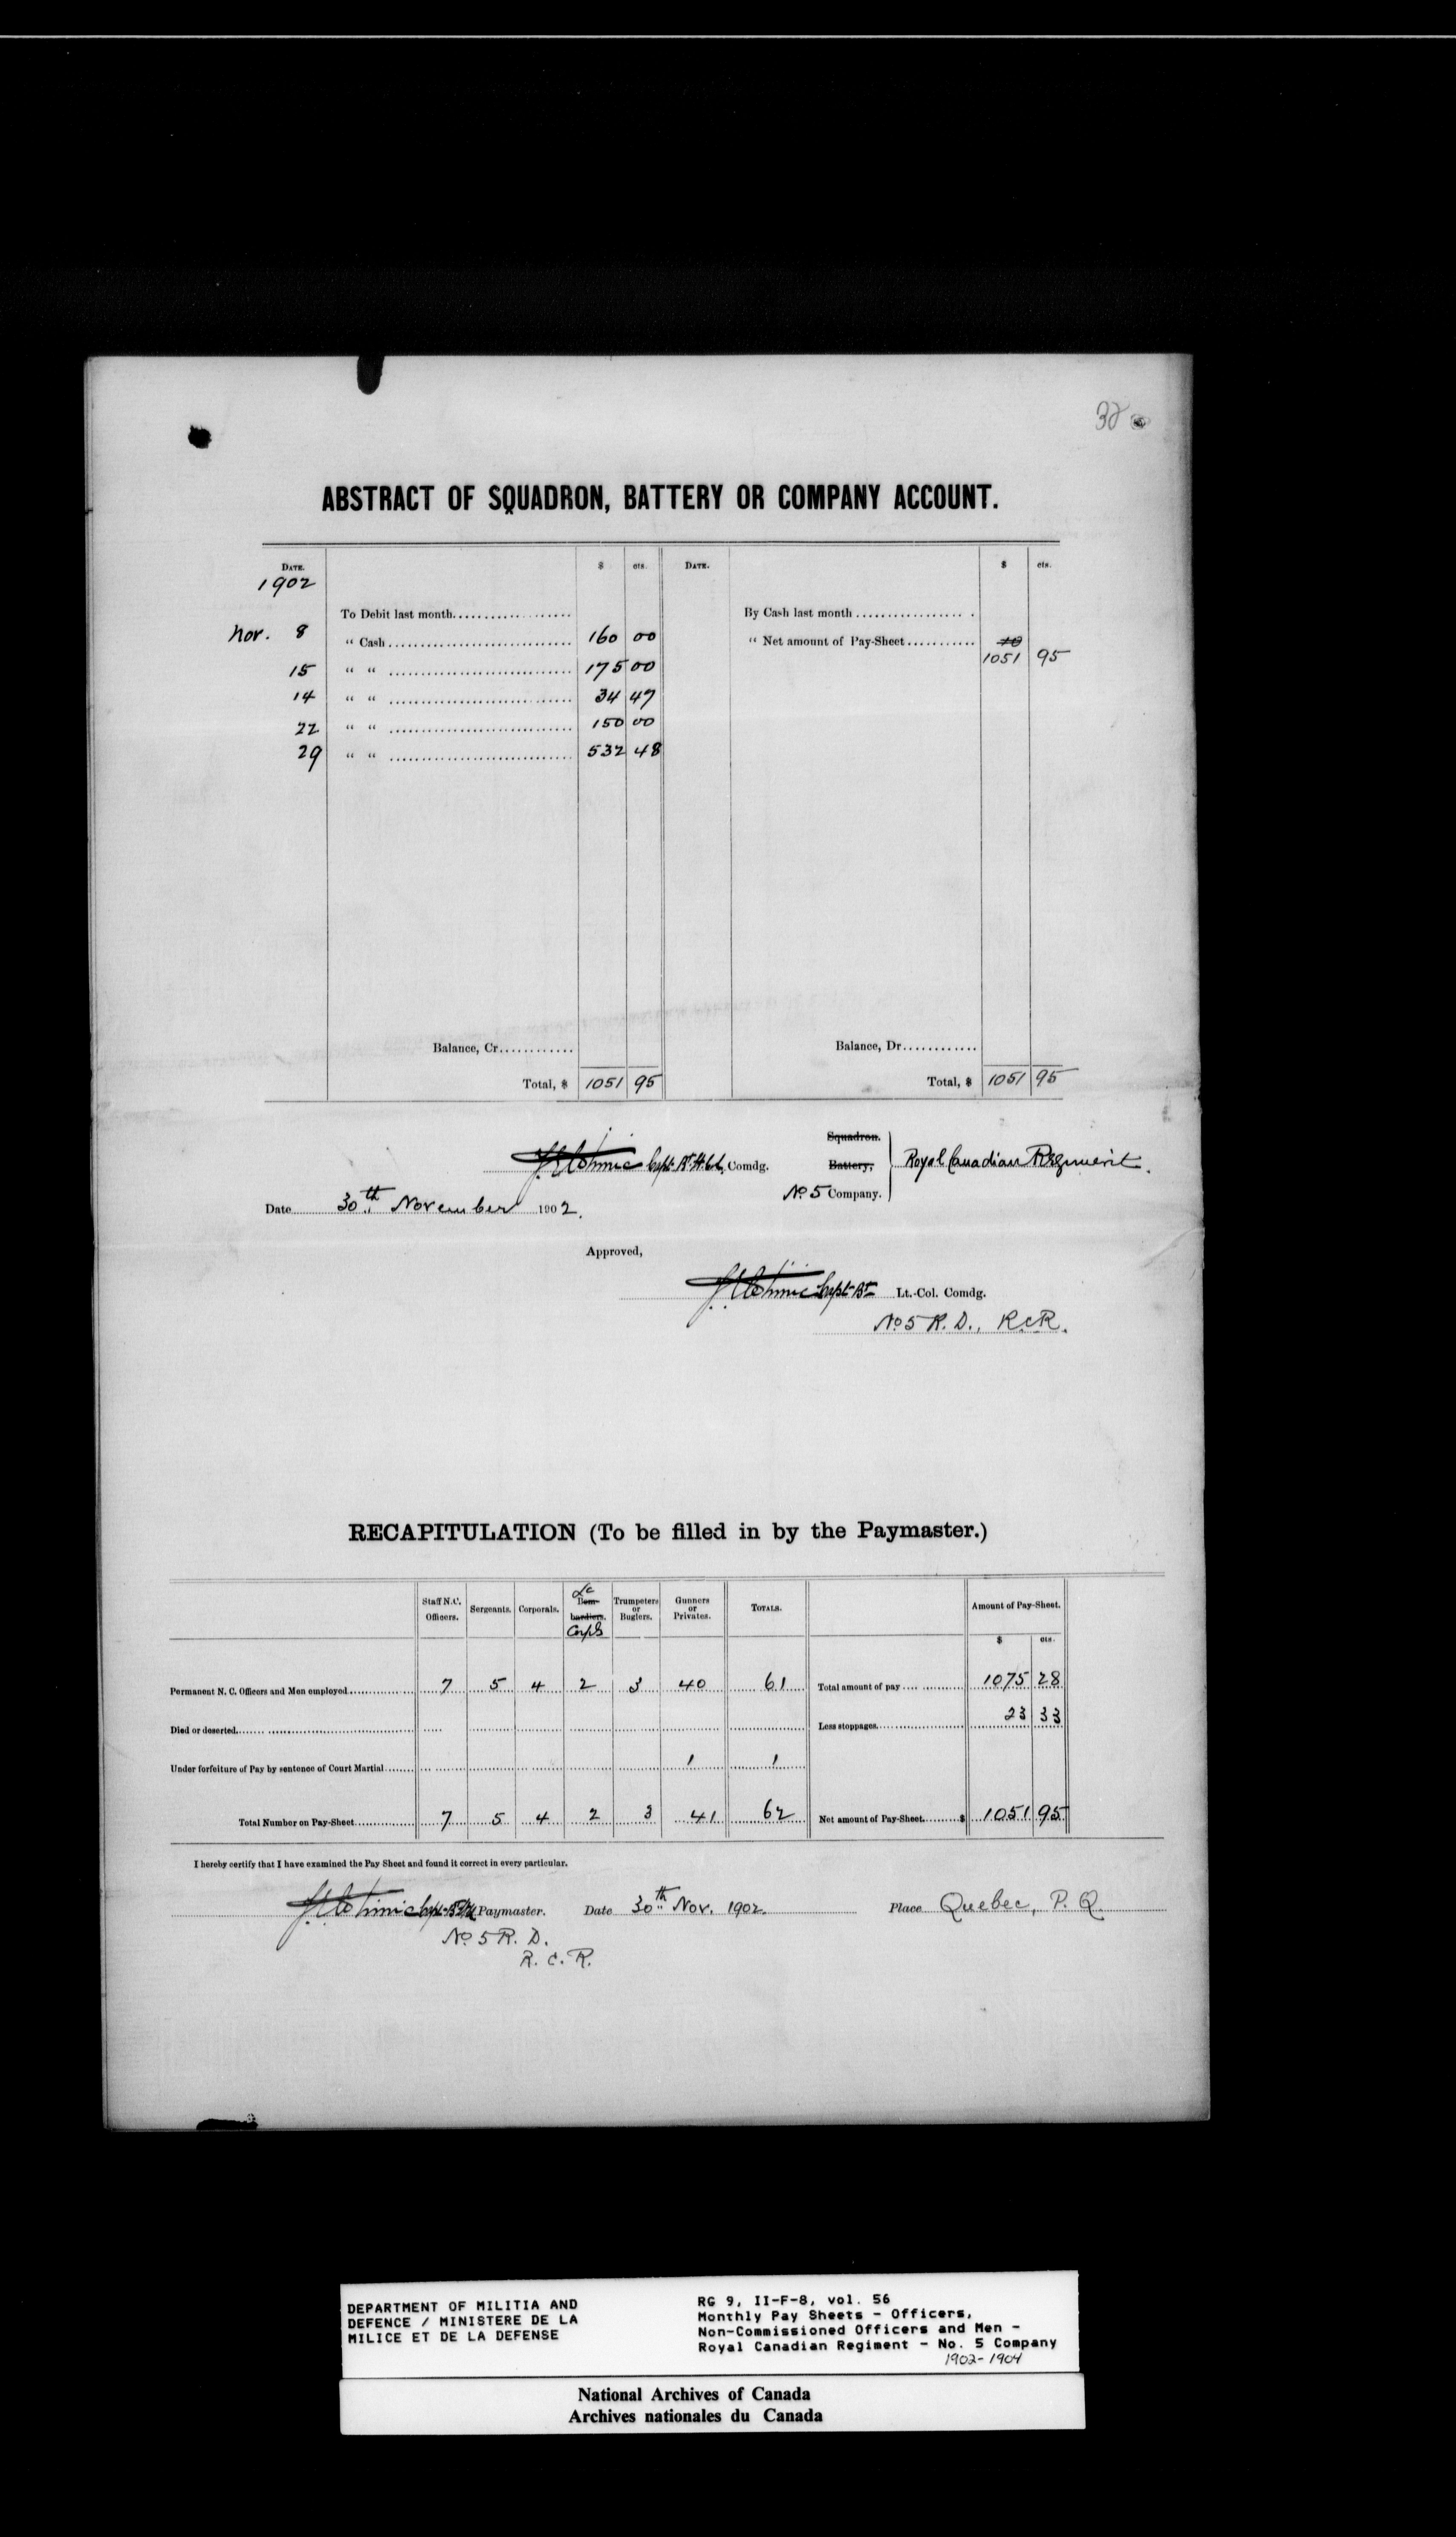 ABSTRACT OF SQUADRON, BATTERY OR COMPANY ACCOUNT.
DATE. $ cts. DATE. $ cts.
1902
To Debit last month By Cash last month
Nov. 8 “ Cash 160 00 “ Net amount of Pay-Sheet 1051 95
15 “ “ 175 00
14 “ “ 34 47
22 “ “ 150 00
29 “ “ 532 48
Balance, Cr. Balance, Dr.
Total, $ 1051 95 Total, $ 1051 95
Squadron.
Capt. Comdg. Battery, Royal Canadian Regiment.
No 5 Company.
Date 30th November 1902.
Approved,
Capt. Bt Lt.-Col. Comdg.
No 5 R. D., R.C.R.
RECAPITULATION (To be filled in by the Paymaster.)
Staff N.C. Officers. Sergeants. Corporals. Lc Bombardiers. Corpls Trumpeters or Buglers. Gunners or Privates. TOTALS. Amount of Pay-Sheet.
$ cts.
Permanent N. C. Officers and Men employed 7 5 4 2 3 40 61 Total amount of pay 1075 28
Died or deserted Less stoppages 23 33
Under forfeiture of Pay by sentence of Court Martial 1 1
Total Number on Pay-Sheet 7 5 4 2 3 41 62 Net amount of Pay-Sheet $ 1051 95
I hereby certify that I have examined the Pay Sheet and found it correct in every particular.
Paymaster. Date 30th Nov. 1902. Place Quebec, P. Q.
No 5 R. D.
R. C. R.
DEPARTMENT OF MILITIA AND
DEFENCE / MINISTERE DE LA
MILICE ET DE LA DEFENSE
RG 9, II-F-8, vol. 56
Monthly Pay Sheets - Officers,
Non-Commissioned Officers and Men -
Royal Canadian Regiment - No. 5 Company
1902-1904
National Archives of Canada
Archives nationales du Canada